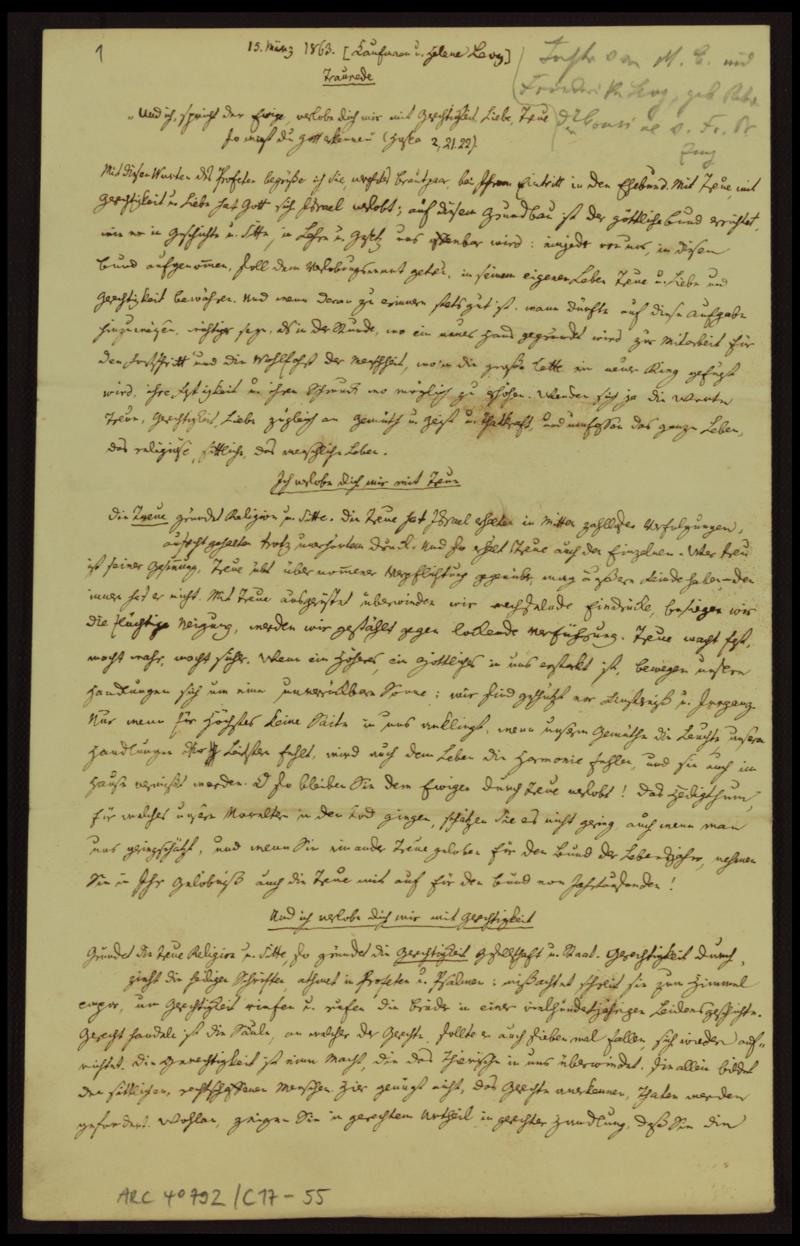 1
15. März 1863. [Kaufmann u. Helene Levy]
Traurede
Tochter von M. E. und
Friederike Levy, geb.
Cousine v. Fr. Dr
Zunz
„Und ich, spricht der Ewige, verlobe dich mir mit Gerechtigkeit, Liebe, Treue
so wirst du Gott erkennen (Hosea 2, 21.22).
Mit diesen Worten des Profeten begrüße ich Sie, verehrtes Brautpaar, bei Ihrem Eintritt in den Ehebund. Mit Treue, mit
Gerechtigkeit u. Liebe hat Gott sich Israel verlobt; auf diesem Grundbau ist der göttliche Bund errichtet,
wie er in Geschichte u. Sitte, in Lehre u. Gesetz uns offenbar wird: ein jeder von uns, in diesen
Bund aufgenommen, soll dem Verlobungswort getreu, in seinem eigenen Leben Treue u. Liebe und
Gerechtigkeit bewähren. Und wenn daran zu erinnern stets gut ist, wann dürfte auf diese Aufgabe
hinzuweisen, wichtiger sein, als in der Stunde, wo ein neues Haus gegründet wird zur Mitarbeit für
den Fortschritt und die Wohlfahrt der Menschheit, wo in die große Kette ein neuer Ring gefügt
wird, ihre Festigkeit u. ihren Schmuck wo möglich zu erhöhen. Wenden sich ja die Worte
Treue, Gerechtigkeit, Liebe zugleich an Gemüth u. Geist u. Thatkraft, und umfassen das ganze Leben,
das religiöse, sittliche, das menschliche Leben.
Ich verlobe dich mir mit Treue
Die Treue gründet Religion u. Sitte. Die Treue hat Israel erhalten in Mitten zahlloser Verfolgungen,
aufrecht gehalten trotz unerhörtem Druck. Und so erhält Treue auch den Einzelnen. Wer treu
ist seiner Gesinnung, Treue übt übernommener Verpflichtung gegenüber, mag äußere Feinde haben – den
innern hat er nicht. Mit Treue ausgerüstet überwinden wir wechselnde Eindrücke, besiegen wir
die flüchtige Neigung, werden wir gestählt gegen lockende Verführung. Treue macht fest,
macht wahr, macht sicher. Wenn ein Höheres, ein Göttliches in uns erstarkt ist, bewegen unsere
Handlungen sich um eine unverrückbare Sonne: wir sind geschützt vor Finsterniß u. Irrgang.
Nur wenn für Höchstes keine Saite in uns erklingt, wenn unserm Gemüthe die Leuchte, unsern
Handlungen der Leitstern fehlt, wird auch dem Leben die Harmonie fehlen, und sie auch im
Hause vermißt werden. O so bleiben Sie dem Ewigen durch Treue verlobt! Das Heiligthum,
für welches unsere Voreltern in den Tod gingen, schätzen Sie es nicht gering, auch wenn man
uns geringschätzt, und wenn Sie einander Treue geloben für den Bund der Lebensjahre, nehmen
Sie in Ihr Gelöbniß auch die Treue mit auf für den Bund von Jahrtausenden!
Und ich verlobe dich mir mit Gerechtigkeit
Gründet die Treue Religion u. Sitte, so gründet die Gerechtigkeit Gesellschaft u. Staat. Gerechtigkeit durch-
zieht die heiligen Schriften, athmet in Profeten u. Psalmen: mißachtet schreit sie zum Himmel
empor, um Gerechtigkeit riefen u. rufen die Brüder in einer vielhundertjährigen Leidensgeschichte.
Gerecht handeln ist die Säule, an welcher der Gerechte, sollte er auch sieben mal fallen, sich wieder auf-
richtet. Die Gerechtigkeit ist eine Macht, die das Thierische in uns überwindet. Sie allein bildet
den sittlichen, rechtschaffenen Menschen. Hier genügt nicht, das Gerechte anerkennen, Thaten werden
gefordert. Wohlan, zeigen Sie in gerechtem Urtheil in gerechter Handlung, daß Sie den
ARC 4° 792 / C17 - 55